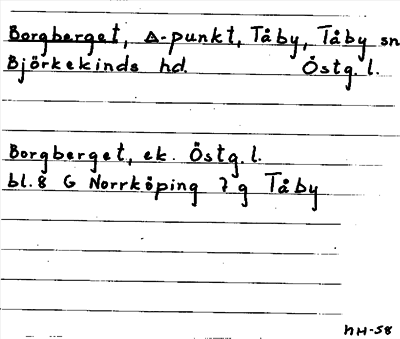 Borgberget, Δ-punkt, Tåby, Tåby sn
Björkekinds hd. Östg. l.
Borgberget, ek. Östg. l.
bl. 8 G Norrköping 7 g Tåby
NH-58